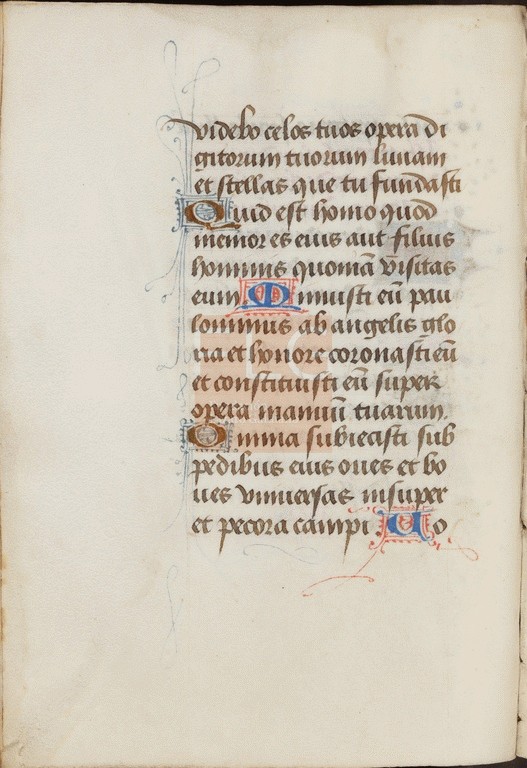 videbo celos tuos opera di
gitorum tuorum lunam
et stellas que tu fundasti
Quid est homo quod
memor es eius aut filius
hominis quoniā visitas
eum Minuisti eū pau
lominus ab angelis glo
ria et honore coronasti eū
et constituisti eū super
opera manuū tuarum
Omnia subiecisti sub
pedibus eius oues et bo
ues vniuersas insuper
et pecora campi Uo